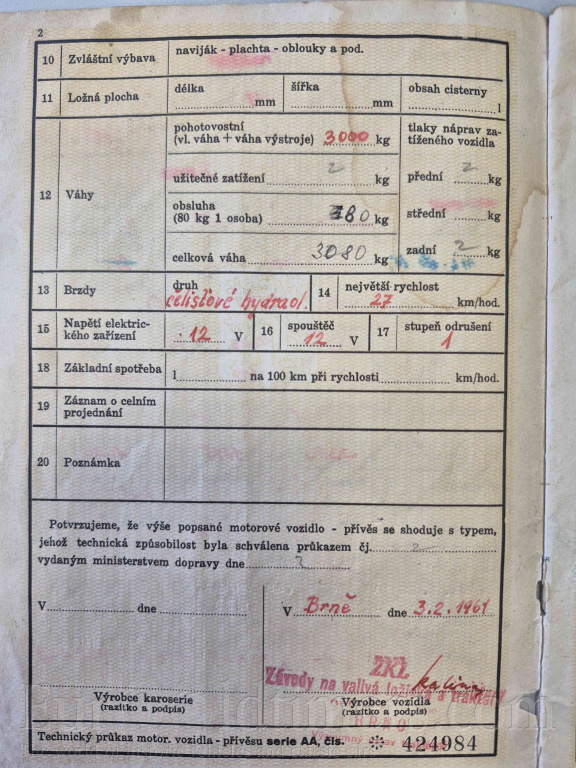 2
10 Zvláštní výbava naviják - plachta - oblouky a pod.
11 Ložná plocha délka mm šířka mm obsah cisterny l
12 Váhy
pohotovostní
(vl. váha + váha výstroje) 3000 kg
užitečné zatížení 2 kg
obsluha
(80 kg 1 osoba) 80 kg
celková váha 3080 kg
tlaky náprav za-
tíženého vozidla
přední 2 kg
střední kg
zadní 2 kg
13 Brzdy druh
čelisťové hydraul.
14 největší rychlost
27 km/hod.
15 Napětí elektric-
kého zařízení 12 V
16 spouštěč
12 V
17 stupeň odrušení
1
18 Základní spotřeba l na 100 km při rychlosti km/hod.
19 Záznam o celním
projednání
20 Poznámka
Potvrzujeme, že výše popsané motorové vozidlo - přívěs se shoduje s typem,
jehož technická způsobilost byla schválena průkazem čj. 2
vydaným ministerstvem dopravy dne 2
V dne
V Brně dne 3.2.1961
ZKL
Závody na valivá ložiska a traktory
BRNO
Výrobce karoserie
(razítko a podpis)
Výrobce vozidla
(razítko a podpis)
Technický průkaz motor. vozidla - přívěsu serie AA, čís. 424984